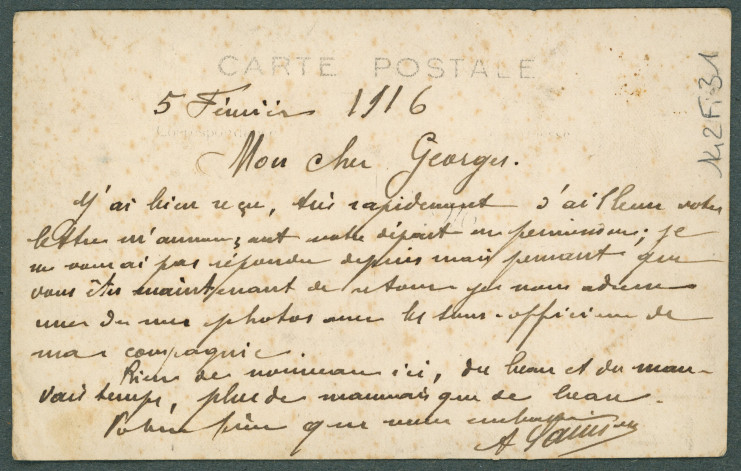 CARTE POSTALE
5 Février 1916
Mon cher Georges.
J'ai bien reçu, très rapidement d'ailleurs votre
lettre m'annonçant votre départ en permission; je
ne vous ai pas répondu depuis mais pensant que
vous êtes maintenant de retour je vous adresse
une de mes photos avec les sous-officiers de
ma compagnie.
Rien de nouveau ici, du beau et du mau-
vais temps, plus de mauvais que de beau.
Votre père qui vous embrasse
A
1K2Fi31